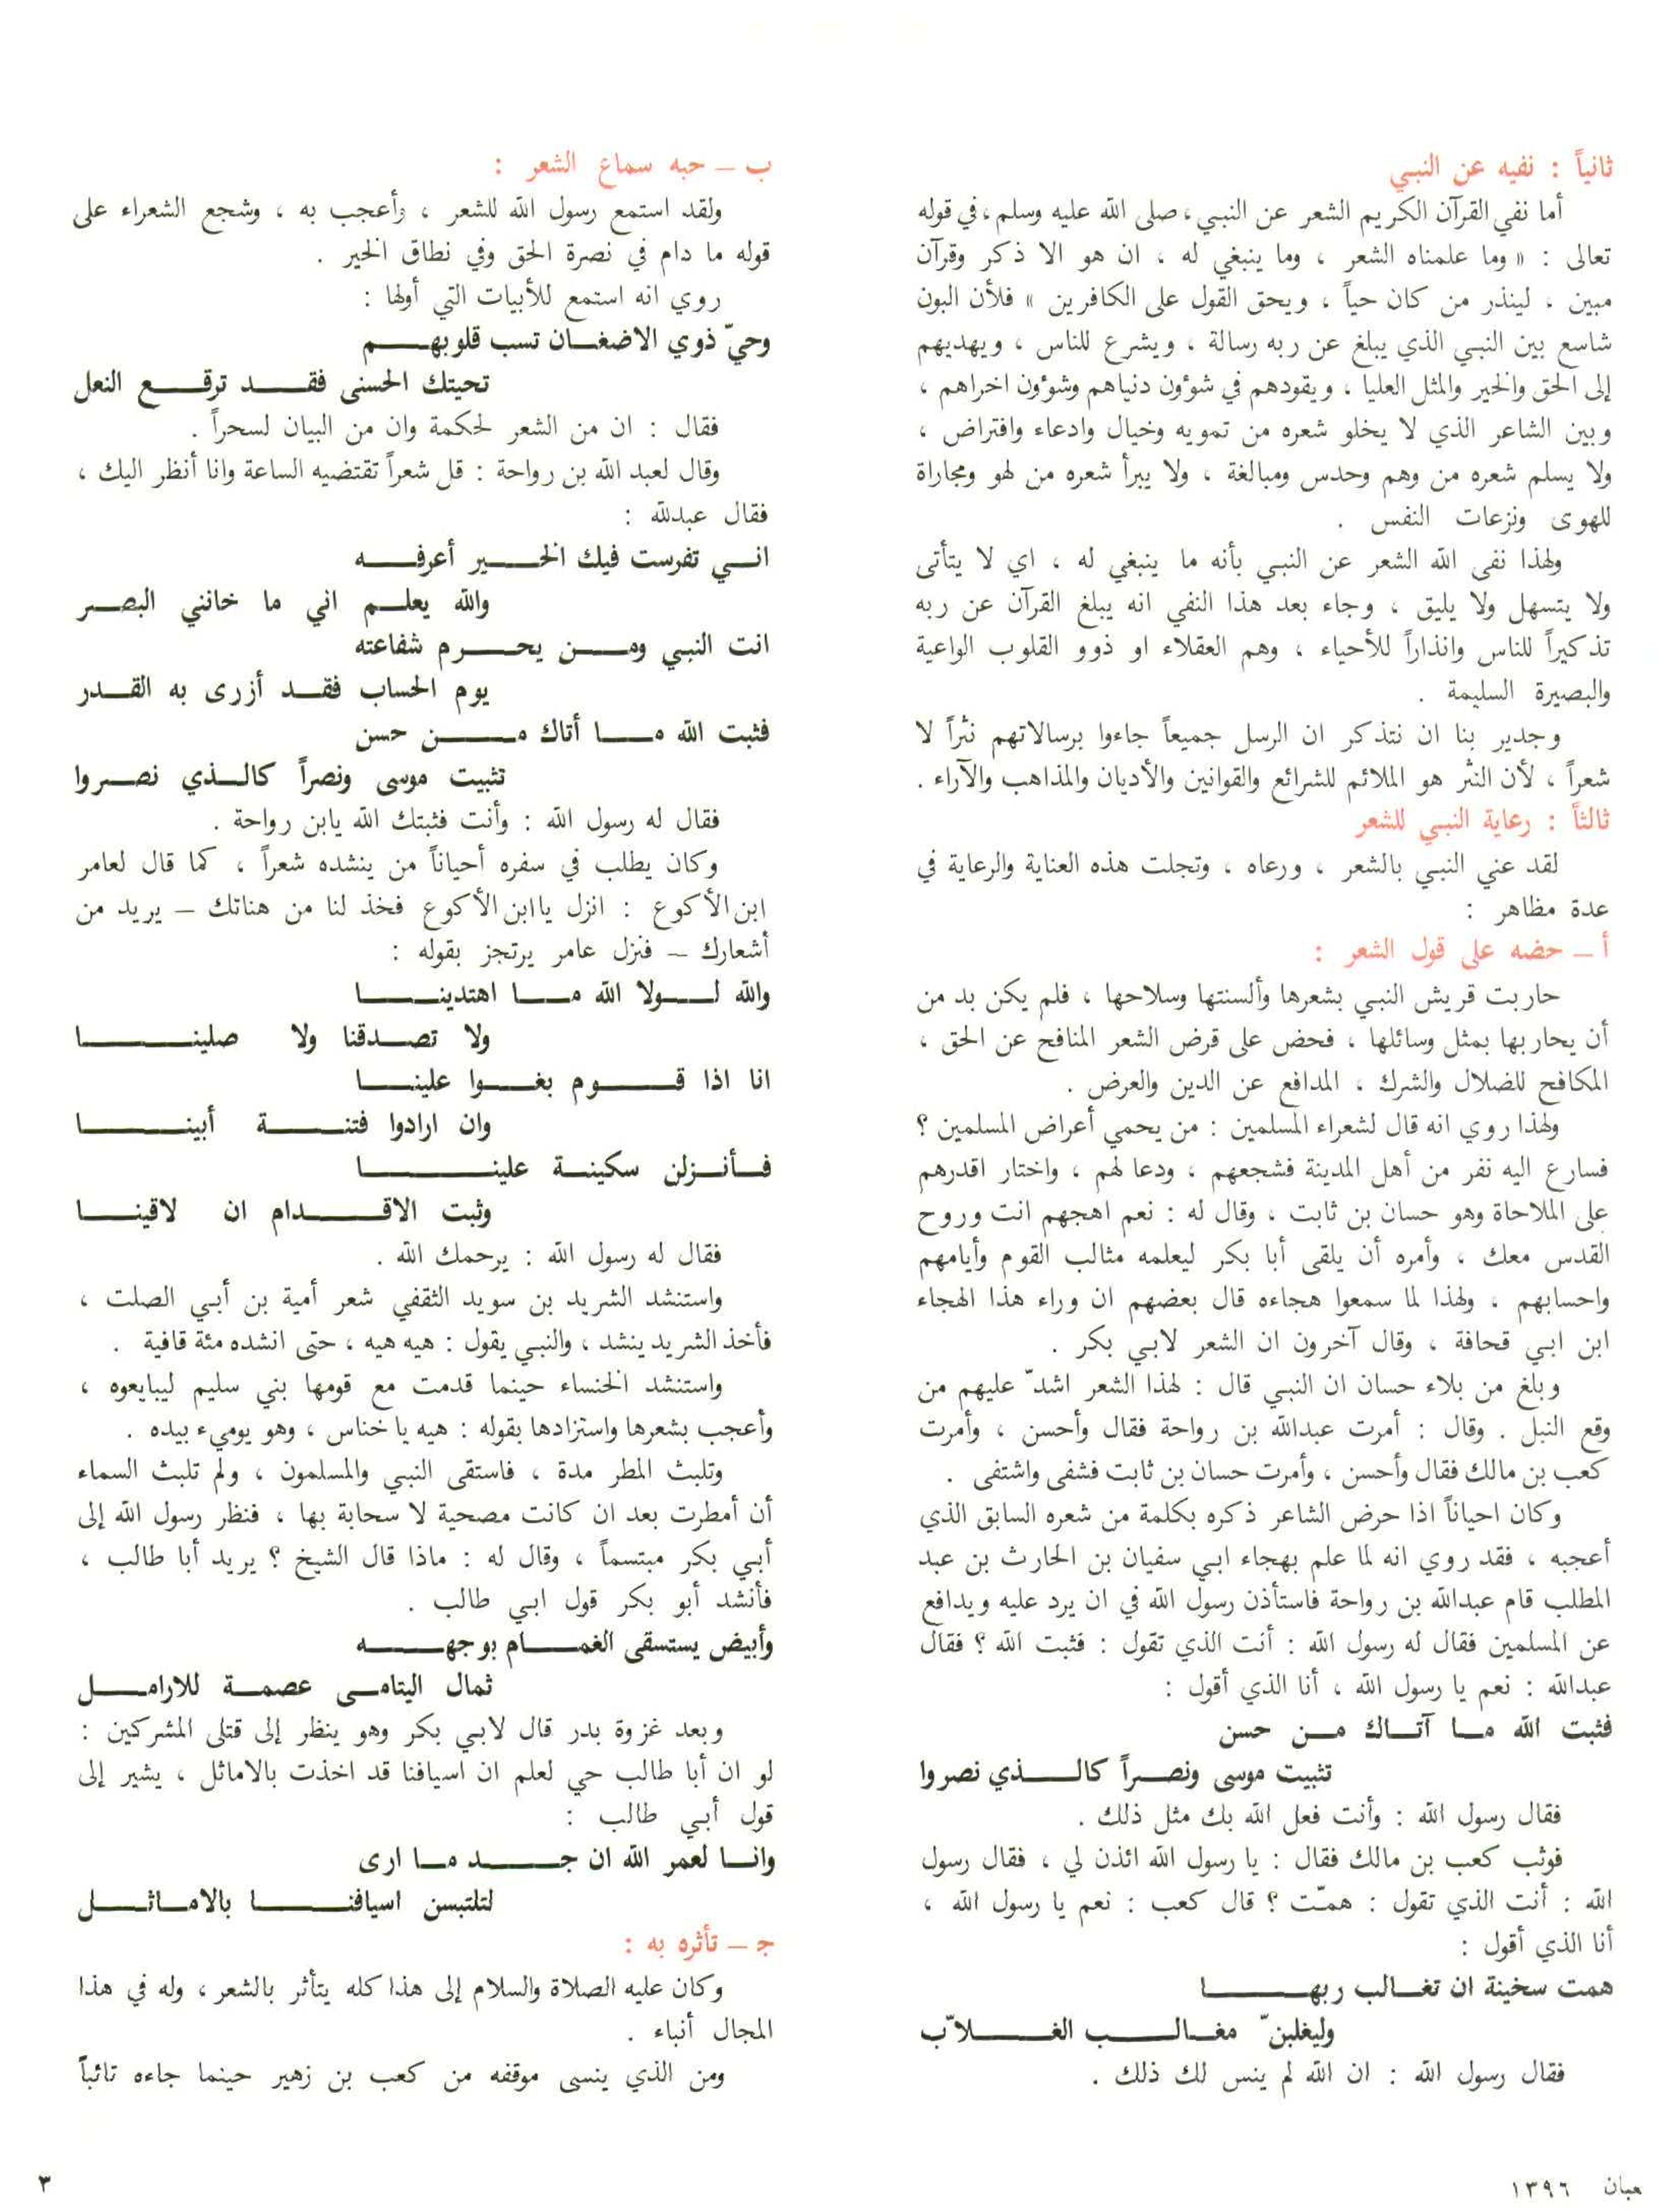 ثانياً : نفيه عن النبي
أما نفي القرآن الكريم الشعر عن النبي ، صلى الله عليه وسلم ، في قوله
تعالى : « وما علمناه الشعر ، وما ينبغي له ، ان هو الا ذكر وقرآن
مبين ، لينذر من كان حياً ، ويحق القول على الكافرين » فلأن البون
شاسع بين النبي الذي يبلغ عن ربه رسالة ، ويشرع للناس ، ويهديهم
إلى الحق والخير والمثل العليا ، ويقودهم في شؤون دنياهم وشؤون اخراهم ،
وبين الشاعر الذي لا يخلو شعره من تمويه وخيال وادعاء وافتراض ،
ولا يسلم شعره من وهم وحدس ومبالغة ، ولا يبرأ شعره من لهو ومجاراة
للهوى ونزعات النفس .
ولهذا نفى الله الشعر عن النبي بأنه ما ينبغي له ، اي لا يتأتى
ولا يتسهل ولا يليق ، وجاء بعد هذا النفي انه يبلغ القرآن عن ربه
تذكيراً للناس وانذاراً للأحياء ، وهم العقلاء او ذوو القلوب الواعية
والبصيرة السليمة .
وجدير بنا ان نتذكر ان الرسل جميعاً جاءوا برسالاتهم نثراً لا
شعراً ، لأن النثر هو الملائم للشرائع والقوانين والأديان والمذاهب والآراء .
ثالثاً : رعاية النبي للشعر
لقد عني النبي بالشعر ، ورعاه ، وتجلت هذه العناية والرعاية في
عدة مظاهر :
أ – حضه على قول الشعر :
حاربت قريش النبي بشعرها وألسنتها وسلاحها ، فلم يكن بد من
أن يحاربها بمثل وسائلها ، فحض على قرض الشعر المنافح عن الحق ،
المكافح للضلال والشرك ، المدافع عن الدين والعرض .
ولهذا روي انه قال لشعراء المسلمين : من يحمي أعراض المسلمين ؟
فسارع اليه نفر من أهل المدينة فشجعهم ، ودعا لهم ، واختار اقدرهم
على الملاحاة وهو حسان بن ثابت ، وقال له : نعم اهجهم انت وروح
القدس معك ، وأمره أن يلقى أبا بكر ليعلمه مثالب القوم وأيامهم
واحسابهم ، ولهذا لما سمعوا هجاءه قال بعضهم ان وراء هذا الهجاء
ابن ابي قحافة ، وقال آخرون ان الشعر لابي بكر .
وبلغ من بلاء حسان ان النبي قال : لهذا الشعر اشدّ عليهم من
وقع النبل . وقال : أمرت عبدالله بن رواحة فقال وأحسن ، وأمرت
كعب بن مالك فقال وأحسن ، وأمرت حسان بن ثابت فشفى واشتفى .
وكان احياناً اذا حرض الشاعر ذكره بكلمة من شعره السابق الذي
أعجبه ، فقد روي انه لما علم بهجاء ابي سفيان بن الحارث بن عبد
المطلب قام عبدالله بن رواحة فاستأذن رسول الله في ان يرد عليه ويدافع
عن المسلمين فقال له رسول الله : أنت الذي تقول : فثبت الله ؟ فقال
عبدالله : نعم يا رسول الله ، أنا الذي أقول :
فثبت الله ما آتاك من حسن
تثبيت موسى ونصراً كالذي نصروا
فقال رسول الله : وأنت فعل الله بك مثل ذلك .
فوثب كعب بن مالك فقال : يا رسول الله ائذن لي ، فقال رسول
الله : أنت الذي تقول : همّت ؟ قال كعب : نعم يا رسول الله ،
أنا الذي أقول :
همت سخينة ان تغالب ربها
وليغلبنّ مغالب الغلاّب
فقال رسول الله : ان الله لم ينس لك ذلك .
ب – حبه سماع الشعر :
ولقد استمع رسول الله للشعر ، وأعجب به ، وشجع الشعراء على
قوله ما دام في نصرة الحق وفي نطاق الخير .
روي انه استمع للأبيات التي أولها :
وحيّ ذوي الاضغان تسب قلوبهم
تحيتك الحسنى فقد ترقع النعل
فقال : ان من الشعر لحكمة وان من البيان لسحراً .
وقال لعبد الله بن رواحة : قل شعراً تقتضيه الساعة وانا أنظر اليك ،
فقال عبدلله :
اني تفرست فيك الخير أعرفه
والله يعلم اني ما خانني البصر
انت النبي ومن يحرم شفاعته
يوم الحساب فقد أزرى به القدر
فثبت الله ما أتاك من حسن
تثبيت موسى ونصراً كالذي نصروا
فقال له رسول الله : وأنت فثبتك الله يابن رواحة .
وكان يطلب في سفره أحياناً من ينشده شعراً ، كما قال لعامر
ابن الأكوع : انزل يا ابن الأكوع فخذ لنا من هناتك – يريد من
أشعارك – فنزل عامر يرتجز بقوله :
والله لولا الله ما اهتدينا
ولا تصدقنا ولا صلينا
انا اذا قوم بغوا علينا
وان ارادوا فتنة أبينا
فأنزلن سكينة علينا
وثبت الاقدام ان لاقينا
فقال له رسول الله : يرحمك الله .
واستنشد الشريد بن سويد الثقفي شعر أمية بن أبي الصلت ،
فأخذ الشريد ينشد ، والنبي يقول : هيه هيه ، حتى انشده مئة قافية .
واستنشد الخنساء حينما قدمت مع قومها بني سليم ليبايعوه ،
وأعجب بشعرها واستزادها بقوله : هيه يا خناس ، وهو يوميء بيده .
وتلبث المطر مدة ، فاستقى النبي والمسلمون ، ولم تلبث السماء
أن أمطرت بعد ان كانت مصحية لا سحابة بها ، فنظر رسول الله إلى
أبي بكر مبتسماً ، وقال له : ماذا قال الشيخ ؟ يريد أبا طالب ،
فأنشد أبو بكر قول ابي طالب .
وأبيض يستسقى الغمام بوجهه
ثمال اليتامى عصمة للارامل
وبعد غزوة بدر قال لابي بكر وهو ينظر إلى قتلى المشركين :
لو ان أبا طالب حي لعلم ان اسيافنا قد اخذت بالاماثل ، يشير إلى
قول أبي طالب :
وانا لعمر الله ان جد ما ارى
لتلتبسن اسيافنا بالاماثل
جـ – تأثره به :
وكان عليه الصلاة والسلام إلى هذا كله يتأثر بالشعر ، وله في هذا
المجال أنباء .
ومن الذي ينسى موقفه من كعب بن زهير حينما جاءه تائباً
١٣٩٦
٣